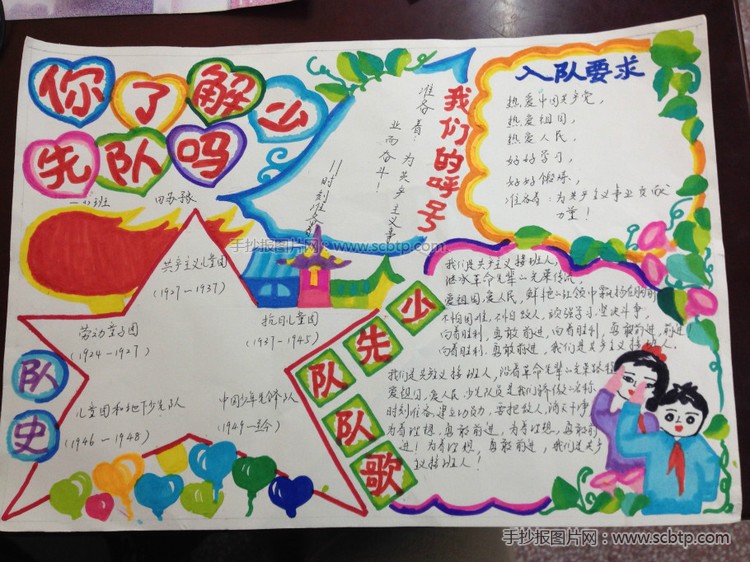 你了解少
先队吗
一、3班
我们的呼号
准备着！为共产主义事
业而奋斗！
——时刻准备着
入队要求
热爱中国共产党，
热爱祖国，
热爱人民，
好好学习，
好好锻炼，
准备着：为共产主义事业贡献
力量！
手抄报图片网：www.scbtp.com
共产主义儿童团
（1927-1937）
劳动童子团
（1924-1927）
抗日儿童团
（1937-1945）
儿童团和地下少先队
（1946-1948）
中国少年先锋队
（1949-至今）
队史
少先队队歌
我们是共产主义接班人，
继承革命先辈的光荣传统，
爱祖国，爱人民，鲜艳的红领巾飘扬在前胸
不怕困难，不怕敌人，顽强学习，坚决斗争，
向着胜利，勇敢前进，向着胜利，勇敢前进，前进！
向着胜利，勇敢前进，我们是共产主义接班人。
我们是共产主义接班人，沿着革命先辈的光荣路程
爱祖国，爱人民，少先队员是我们骄傲的名称
时刻准备，建立功勋，要把敌人，消灭干净
为着理想，勇敢前进，为着理想，勇敢前
进！为着理想，勇敢前进，我们是共产
主义接班人！
手抄报图片网：www.scbtp.com